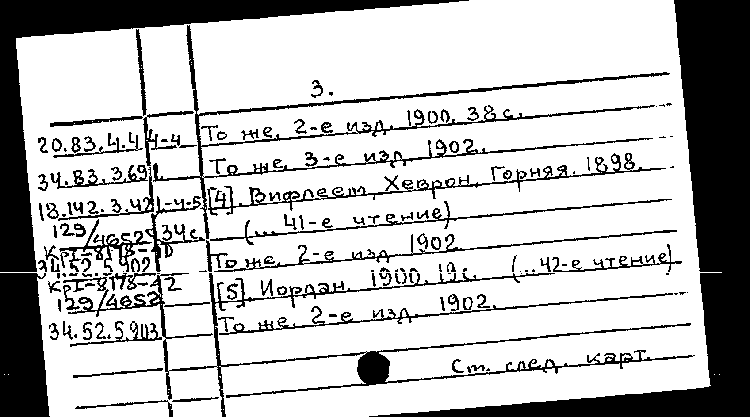 3.
20.83.4.4 4-4 То же, 2-е изд. 1900. 38 с.
34.83.3.691. То же, 3-е изд. 1902.
18.142.3.421-4-5 [4]. Вифлеем, Хеврон, Горняя. 1898.
129/4652 34 с. (... 41-е чтение)
КрI-8178-
34.52.5.902 То же, 2-е изд 1902
КрI-8178-42
129/4652 [5]. Иордан. 1900. 19 с. (...42-е чтение)
34.52.5.903 То же, 2-е изд. 1902.
См. след. карт.